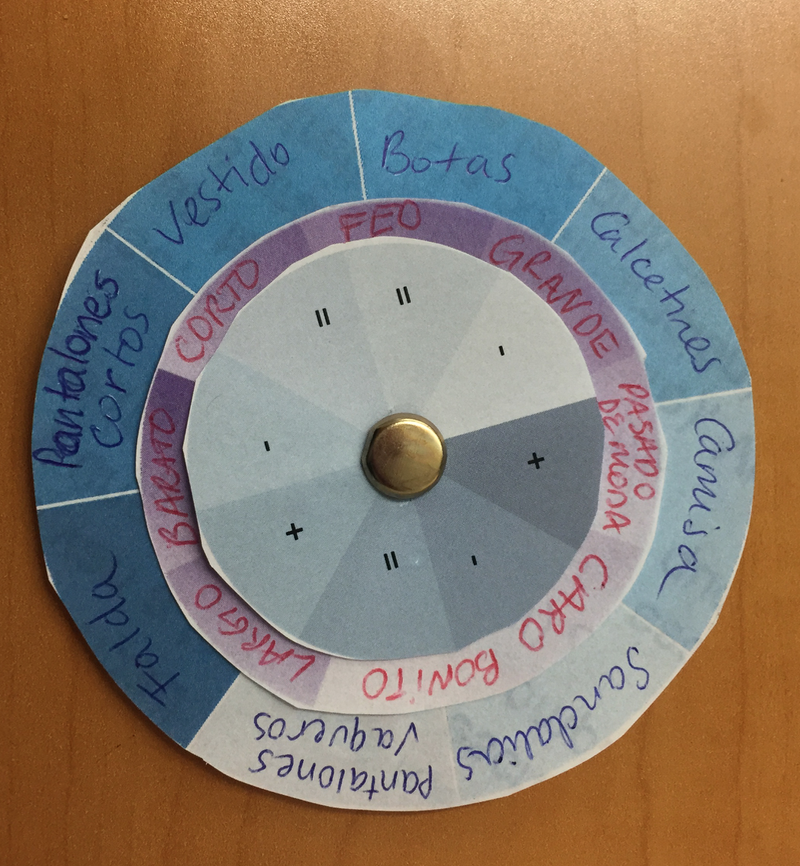 Botas
Calcetines
Camisa
Sandalias
Pantalones
Vaqueros
Falda
Pantalones
cortos
Vestido
FEO
GRANDE
PASADO
DE MODA
CARO
BONITO
LARGO
BARATO
CORTO
=
-
+
-
=
+
-
=